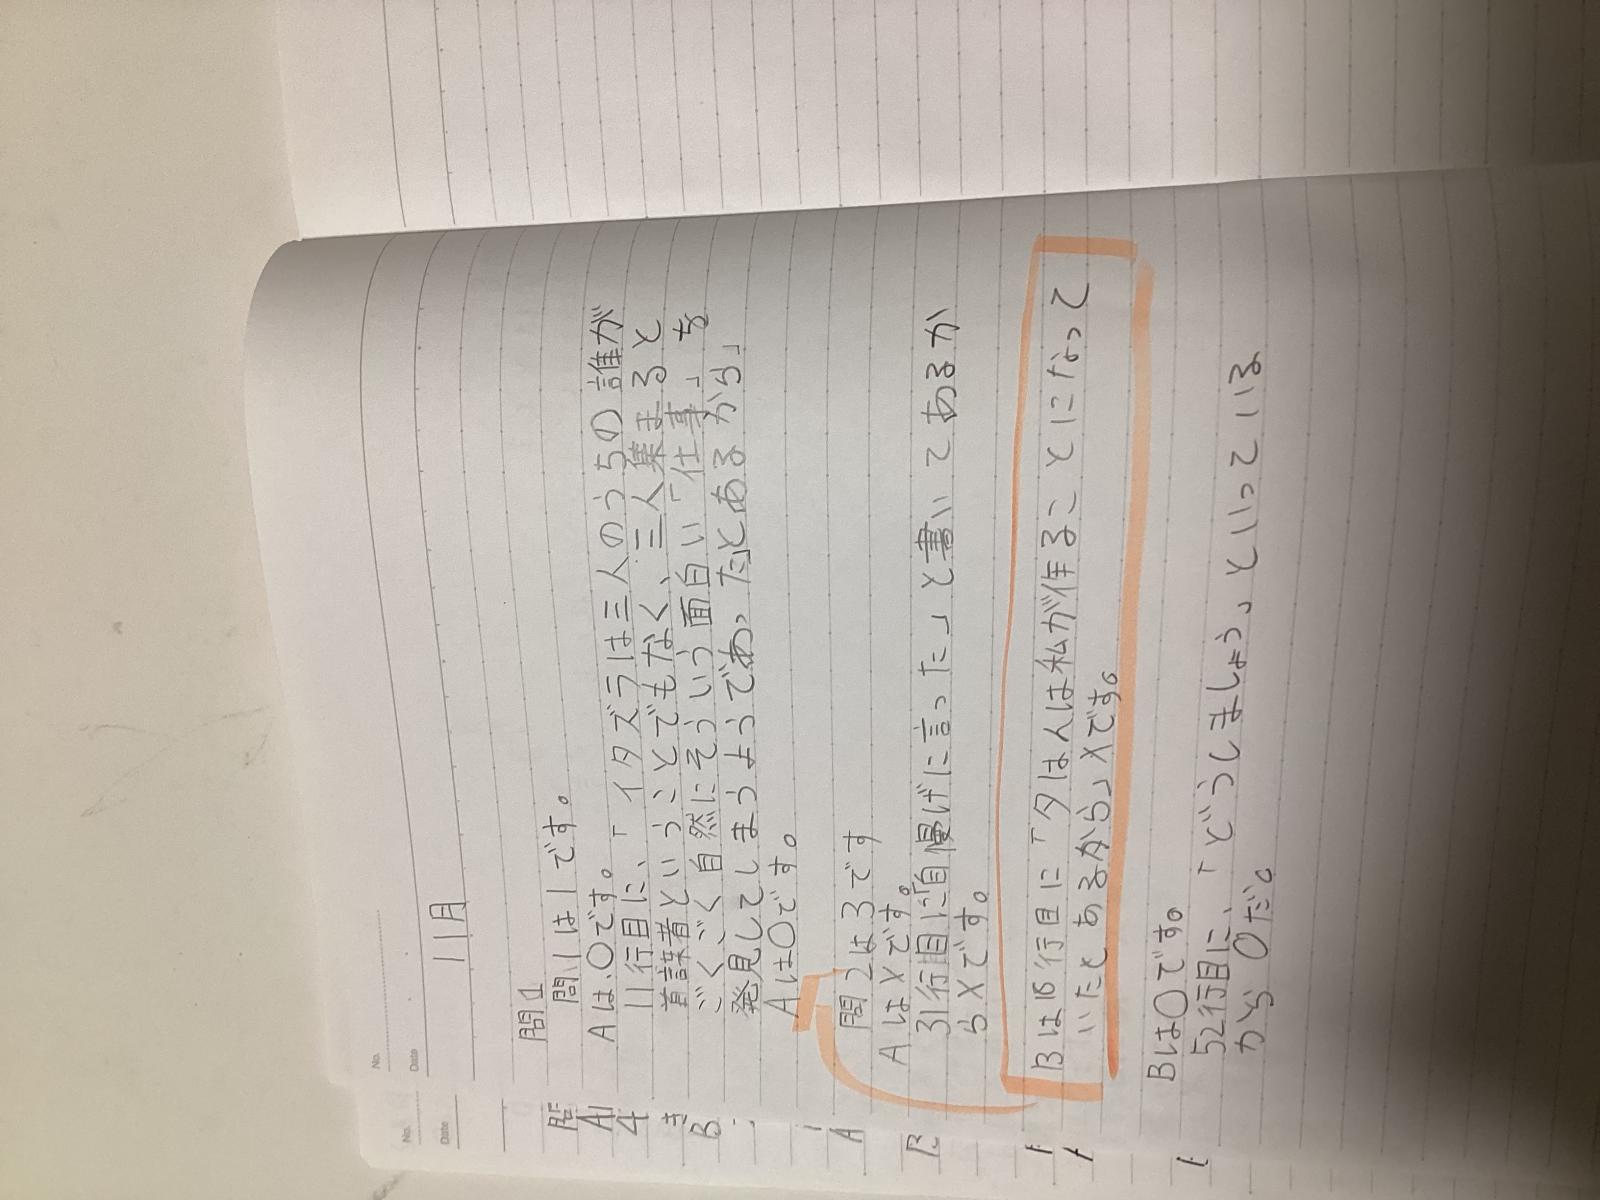 No.
Date
11月
問1
問1は1です。
Aは、〇です。
11行目に、「イタズラは三人のうちの誰が
首謀者ということでもなく、三人集まると
ごくごく自然にそういう面白い「仕事」を
発見してしまうようであった」とあるから」
Aは〇です。
問2は3です
Aは×です。
31行目に「自慢げに言った」と書いてあるか
ら×です。
Bは18行目に「夕はんは私が作ることになって
いたとあるから」×です。
Bは〇です。
52行目に、「どうしましょう」といっている
から〇だ。
No.
Date
問
A
4
き
B
A